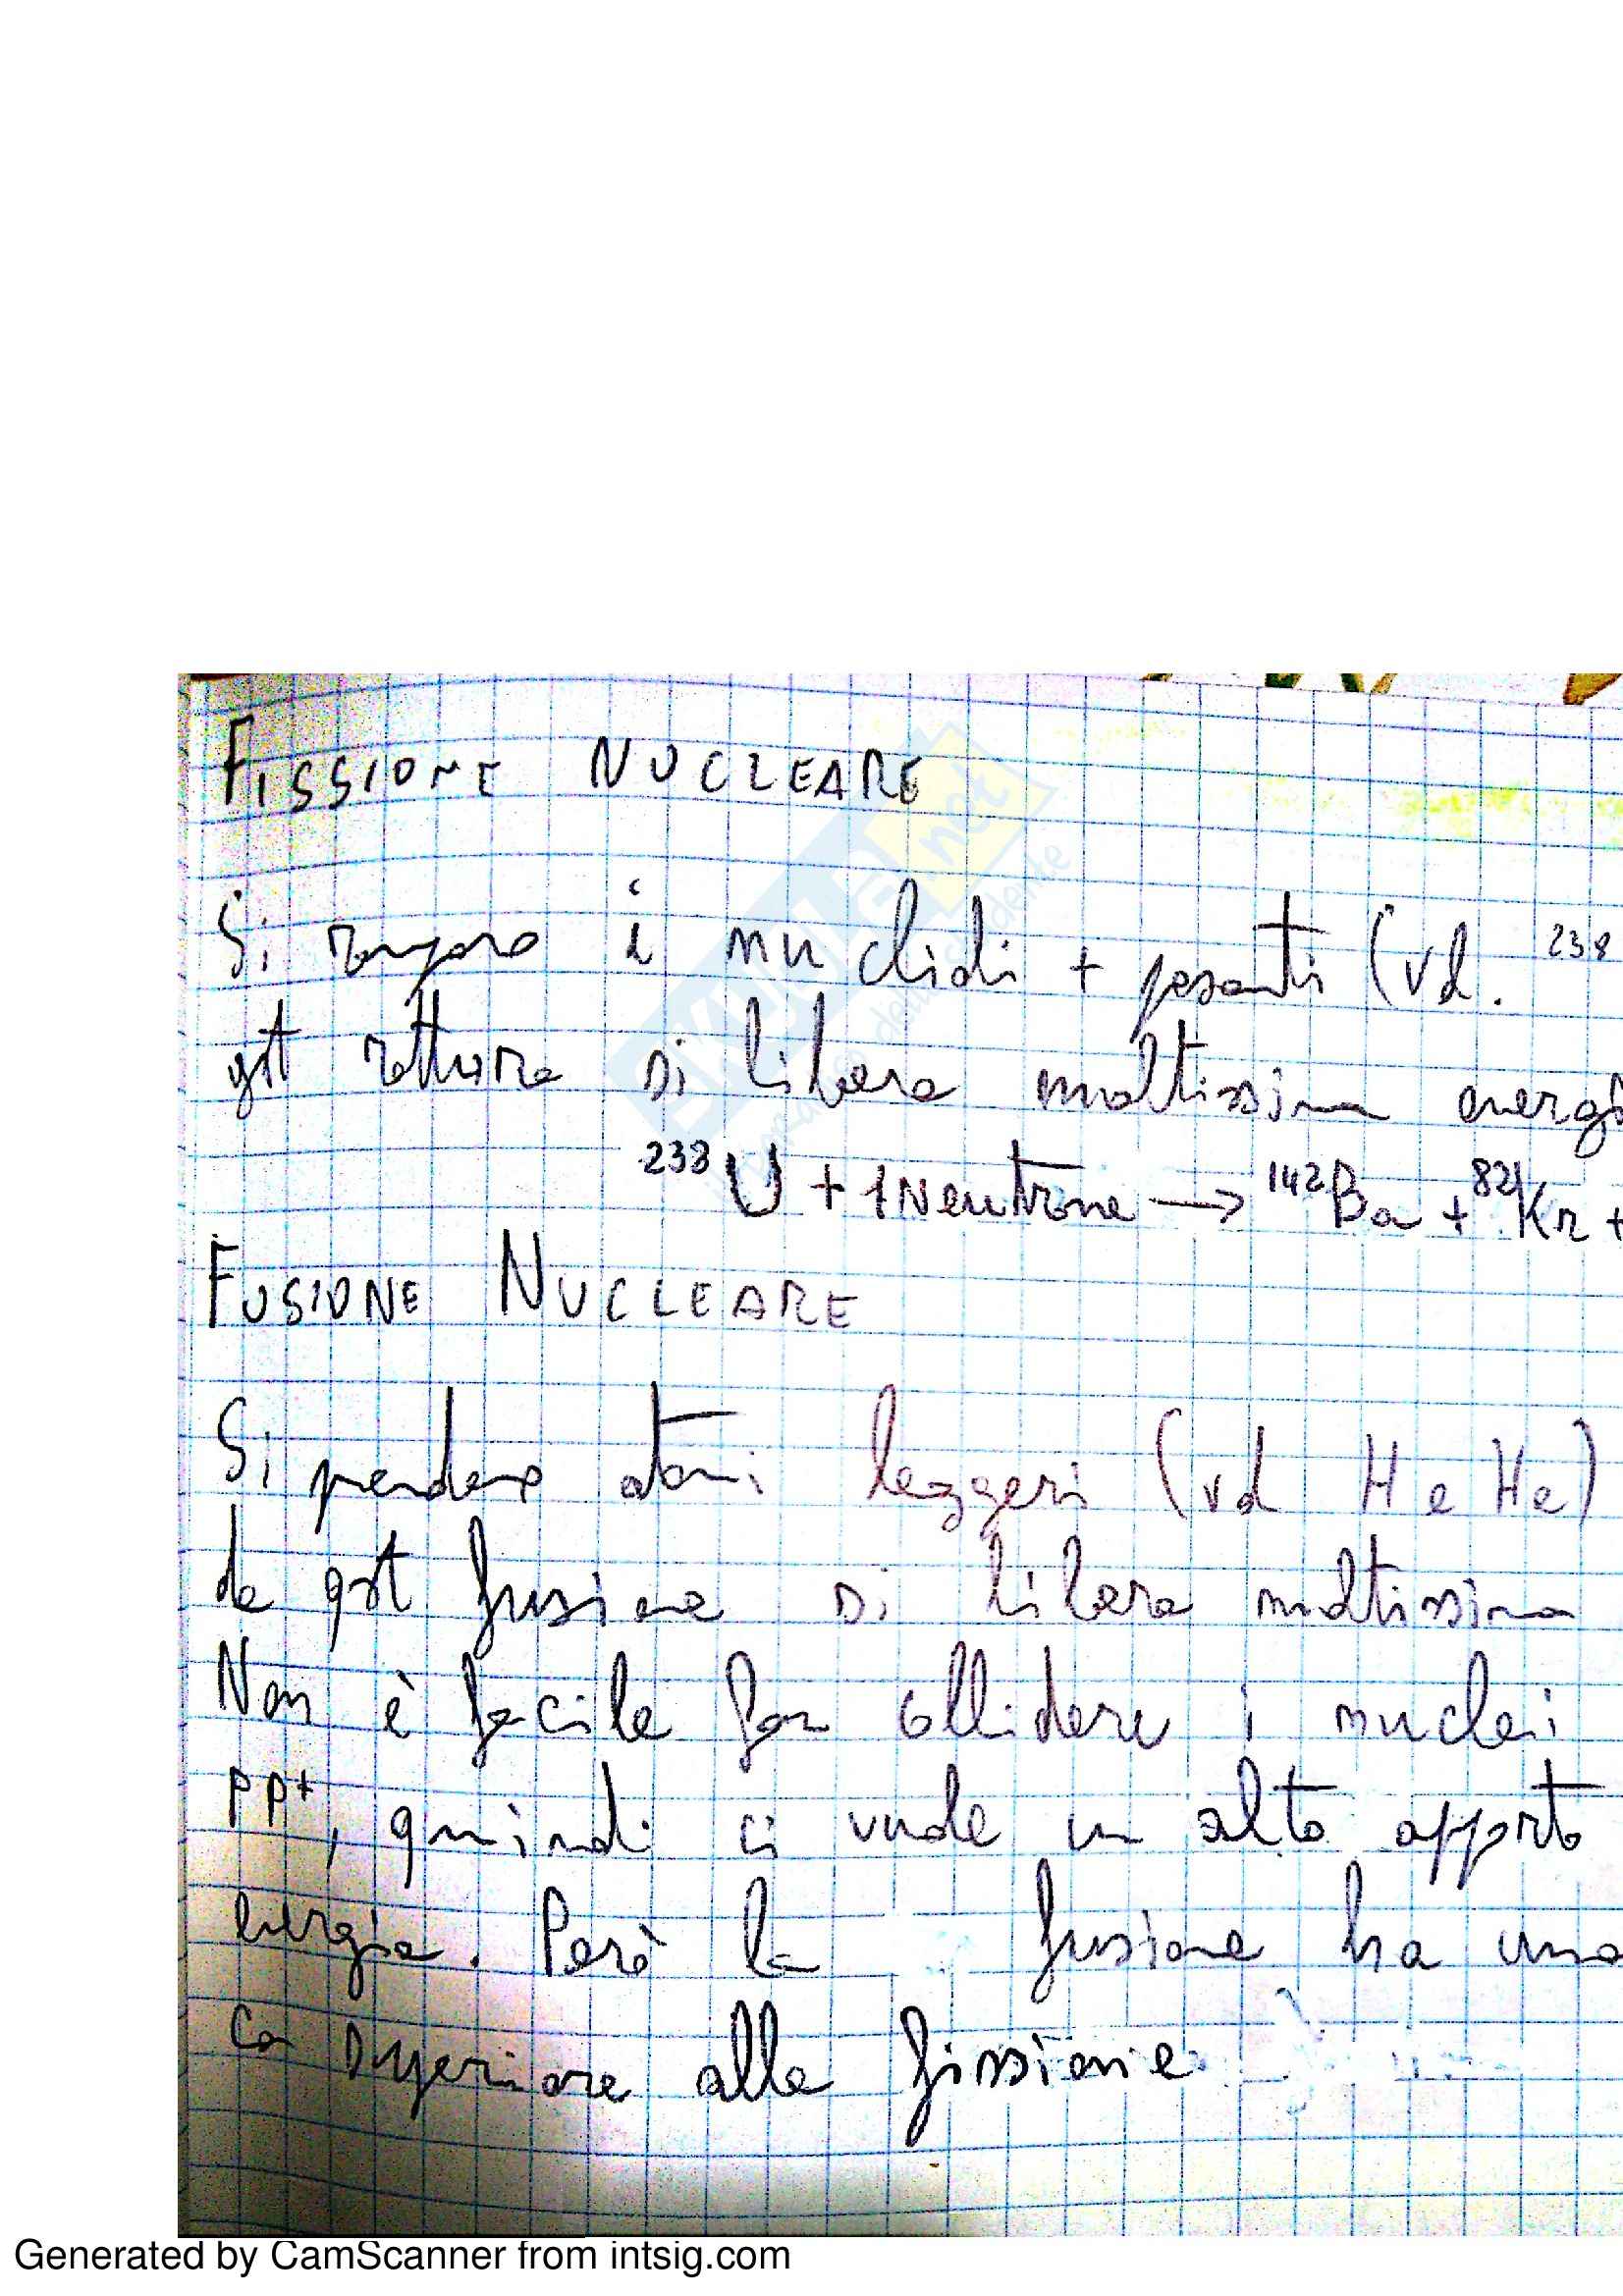 FISSIONE NUCLEARE
Si rompono i nuclidi + pesanti (vd. 238
qst rottura si libera moltissima energi
238U + 1 Neutrone → 142Ba + 82Kr +
FUSIONE NUCLEARE
Si prendono atomi leggeri (vd H e He)
da qst fusione si libera moltissima
Non è facile far collidere i nuclei
pp+, quindi ci vuole un alto apporto
energia. Però la fusione ha una
ca superiore alla fissione
SKUOLA.net
Generated by CamScanner from intsig.com